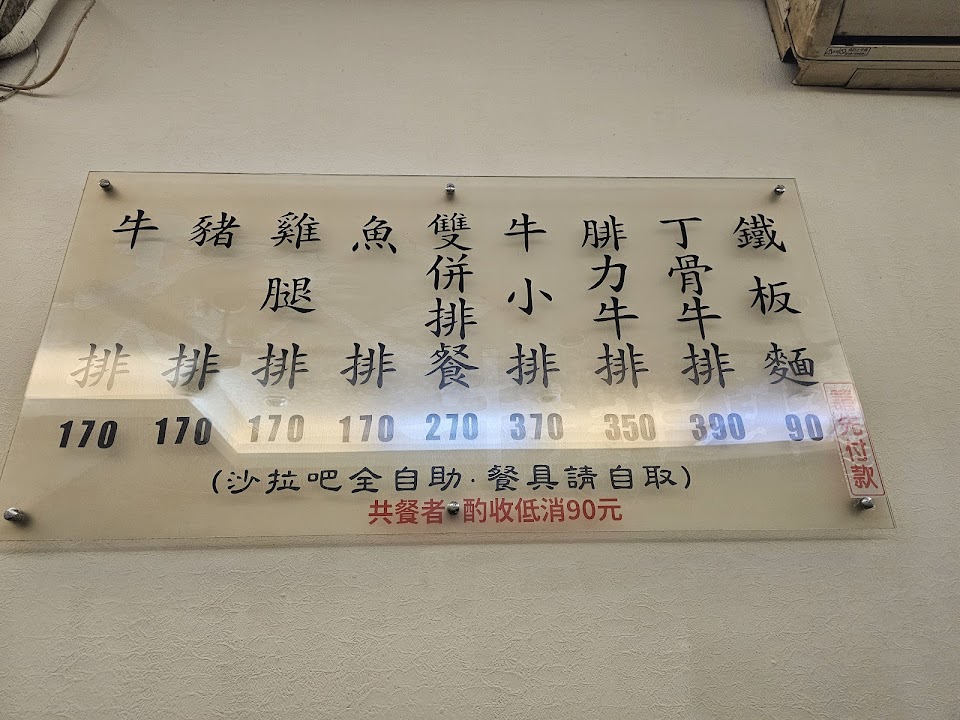 牛排 170
豬排 170
雞腿排 170
魚排 170
雙併排餐 270
牛小排 370
腓力牛排 350
丁骨牛排 390
鐵板麵 90
(沙拉吧全自助·餐具請自取)
共餐者 酌收低消90元
請先付款